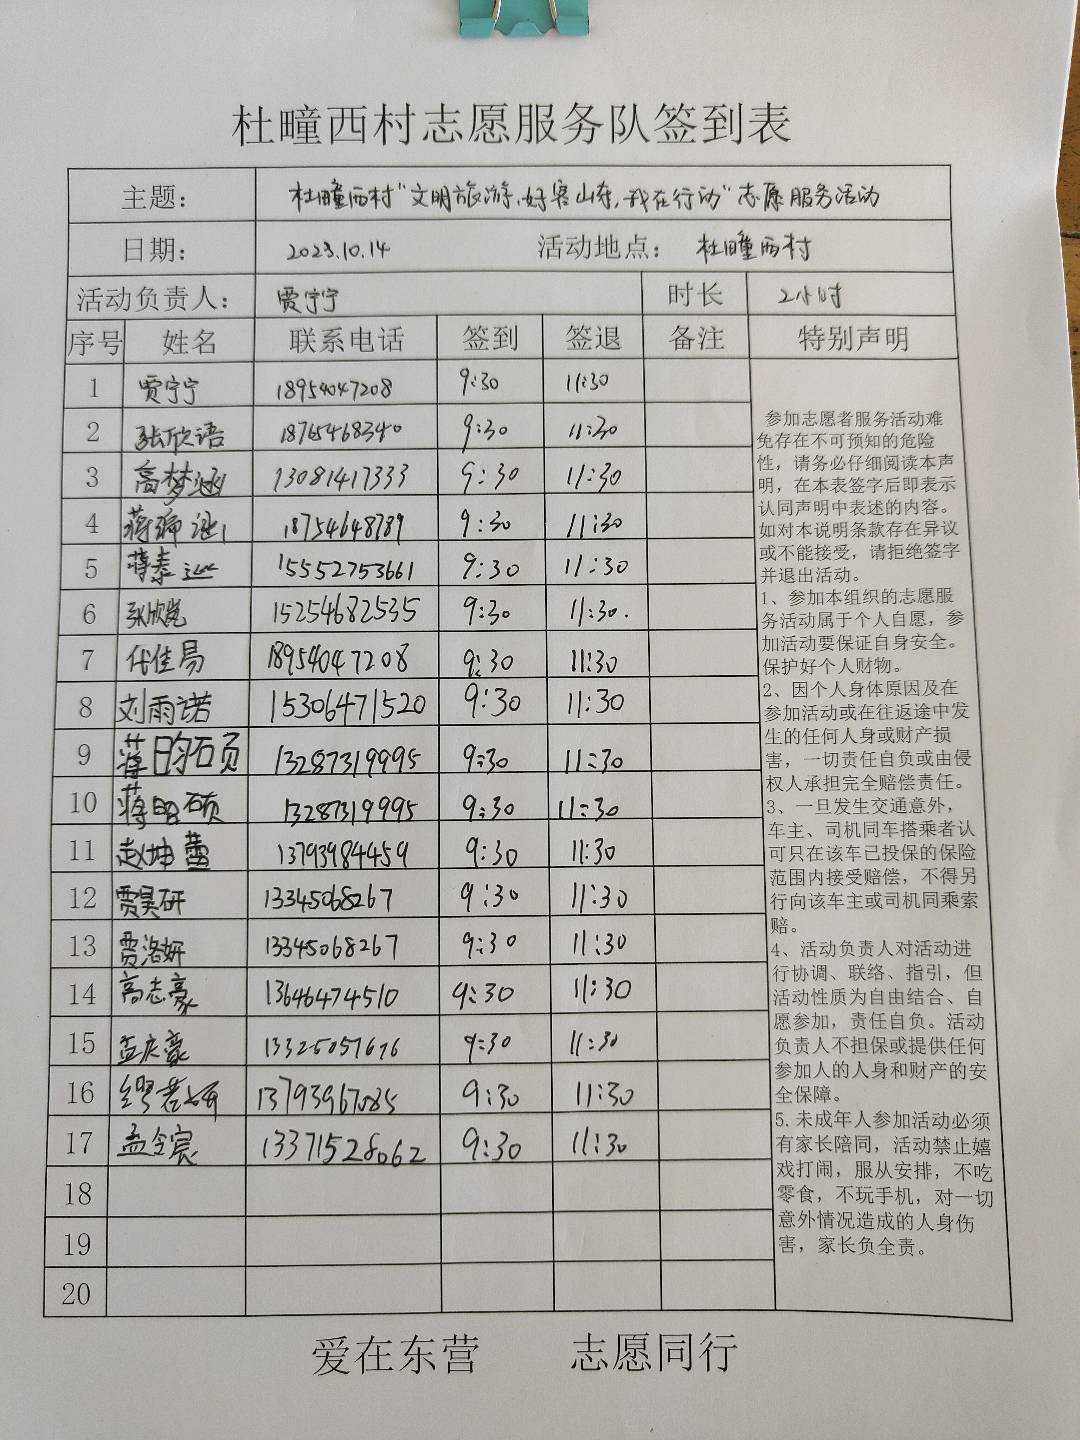 杜疃西村志愿服务队签到表
主题： 杜疃西村“文明旅游,好客山东,我在行动”志愿服务活动
日期： 2023.10.14 活动地点： 杜疃西村
活动负责人： 贾宁宁 时长 2小时
序号 姓名 联系电话 签到 签退 备注 特别声明
1 贾宁宁 18954047208 9:30 11:30
2 张欣语 18765468340 9:30 11:30
3 高梦涵 13081417333 9:30 11:30
4 蒋瑜涵 18754648789 9:30 11:30
5 蒋泰 15552753661 9:30 11:30
6 张欣悦 15254682535 9:30 11:30.
7 代佳易 18954047208 9:30 11:30
8 刘雨诺 15306471520 9:30 11:30
9 蒋昀硕 13287319995 9:30 11:30
10 蒋明硕 13287319995 9:30 11:30
11 赵坤蕾 13793984459 9:30 11:30
12 贾昊研 13345068267 9:30 11:30
13 贾洛妍 13345068267 9:30 11:30
14 高志豪 13646474510 9:30 11:30
15 孟庆豪 13325057676 9:30 11:30
16 缪若妍 13793967085 9:30 11:30
17 孟令宸 13371528062 9:30 11:30
18
19
20
参加志愿者服务活动难
免存在不可预知的危险
性，请务必仔细阅读本声
明，在本表签字后即表示
认同声明中表述的内容。
如对本说明条款存在异议
或不能接受，请拒绝签字
并退出活动。
1、参加本组织的志愿服
务活动属于个人自愿，参
加活动要保证自身安全。
保护好个人财物。
2、因个人身体原因及在
参加活动或在往返途中发
生的任何人身或财产损
害，一切责任自负或由侵
权人承担完全赔偿责任。
3、一旦发生交通意外，
车主、司机同车搭乘者认
可只在该车已投保的保险
范围内接受赔偿，不得另
行向该车主或司机同乘索
赔。
4、活动负责人对活动进
行协调、联络、指引，但
活动性质为自由结合、自
愿参加，责任自负。活动
负责人不担保或提供任何
参加人的人身和财产的安
全保障。
5.未成年人参加活动必须
有家长陪同，活动禁止嬉
戏打闹，服从安排，不吃
零食，不玩手机，对一切
意外情况造成的人身伤
害，家长负全责。
爱在东营 志愿同行